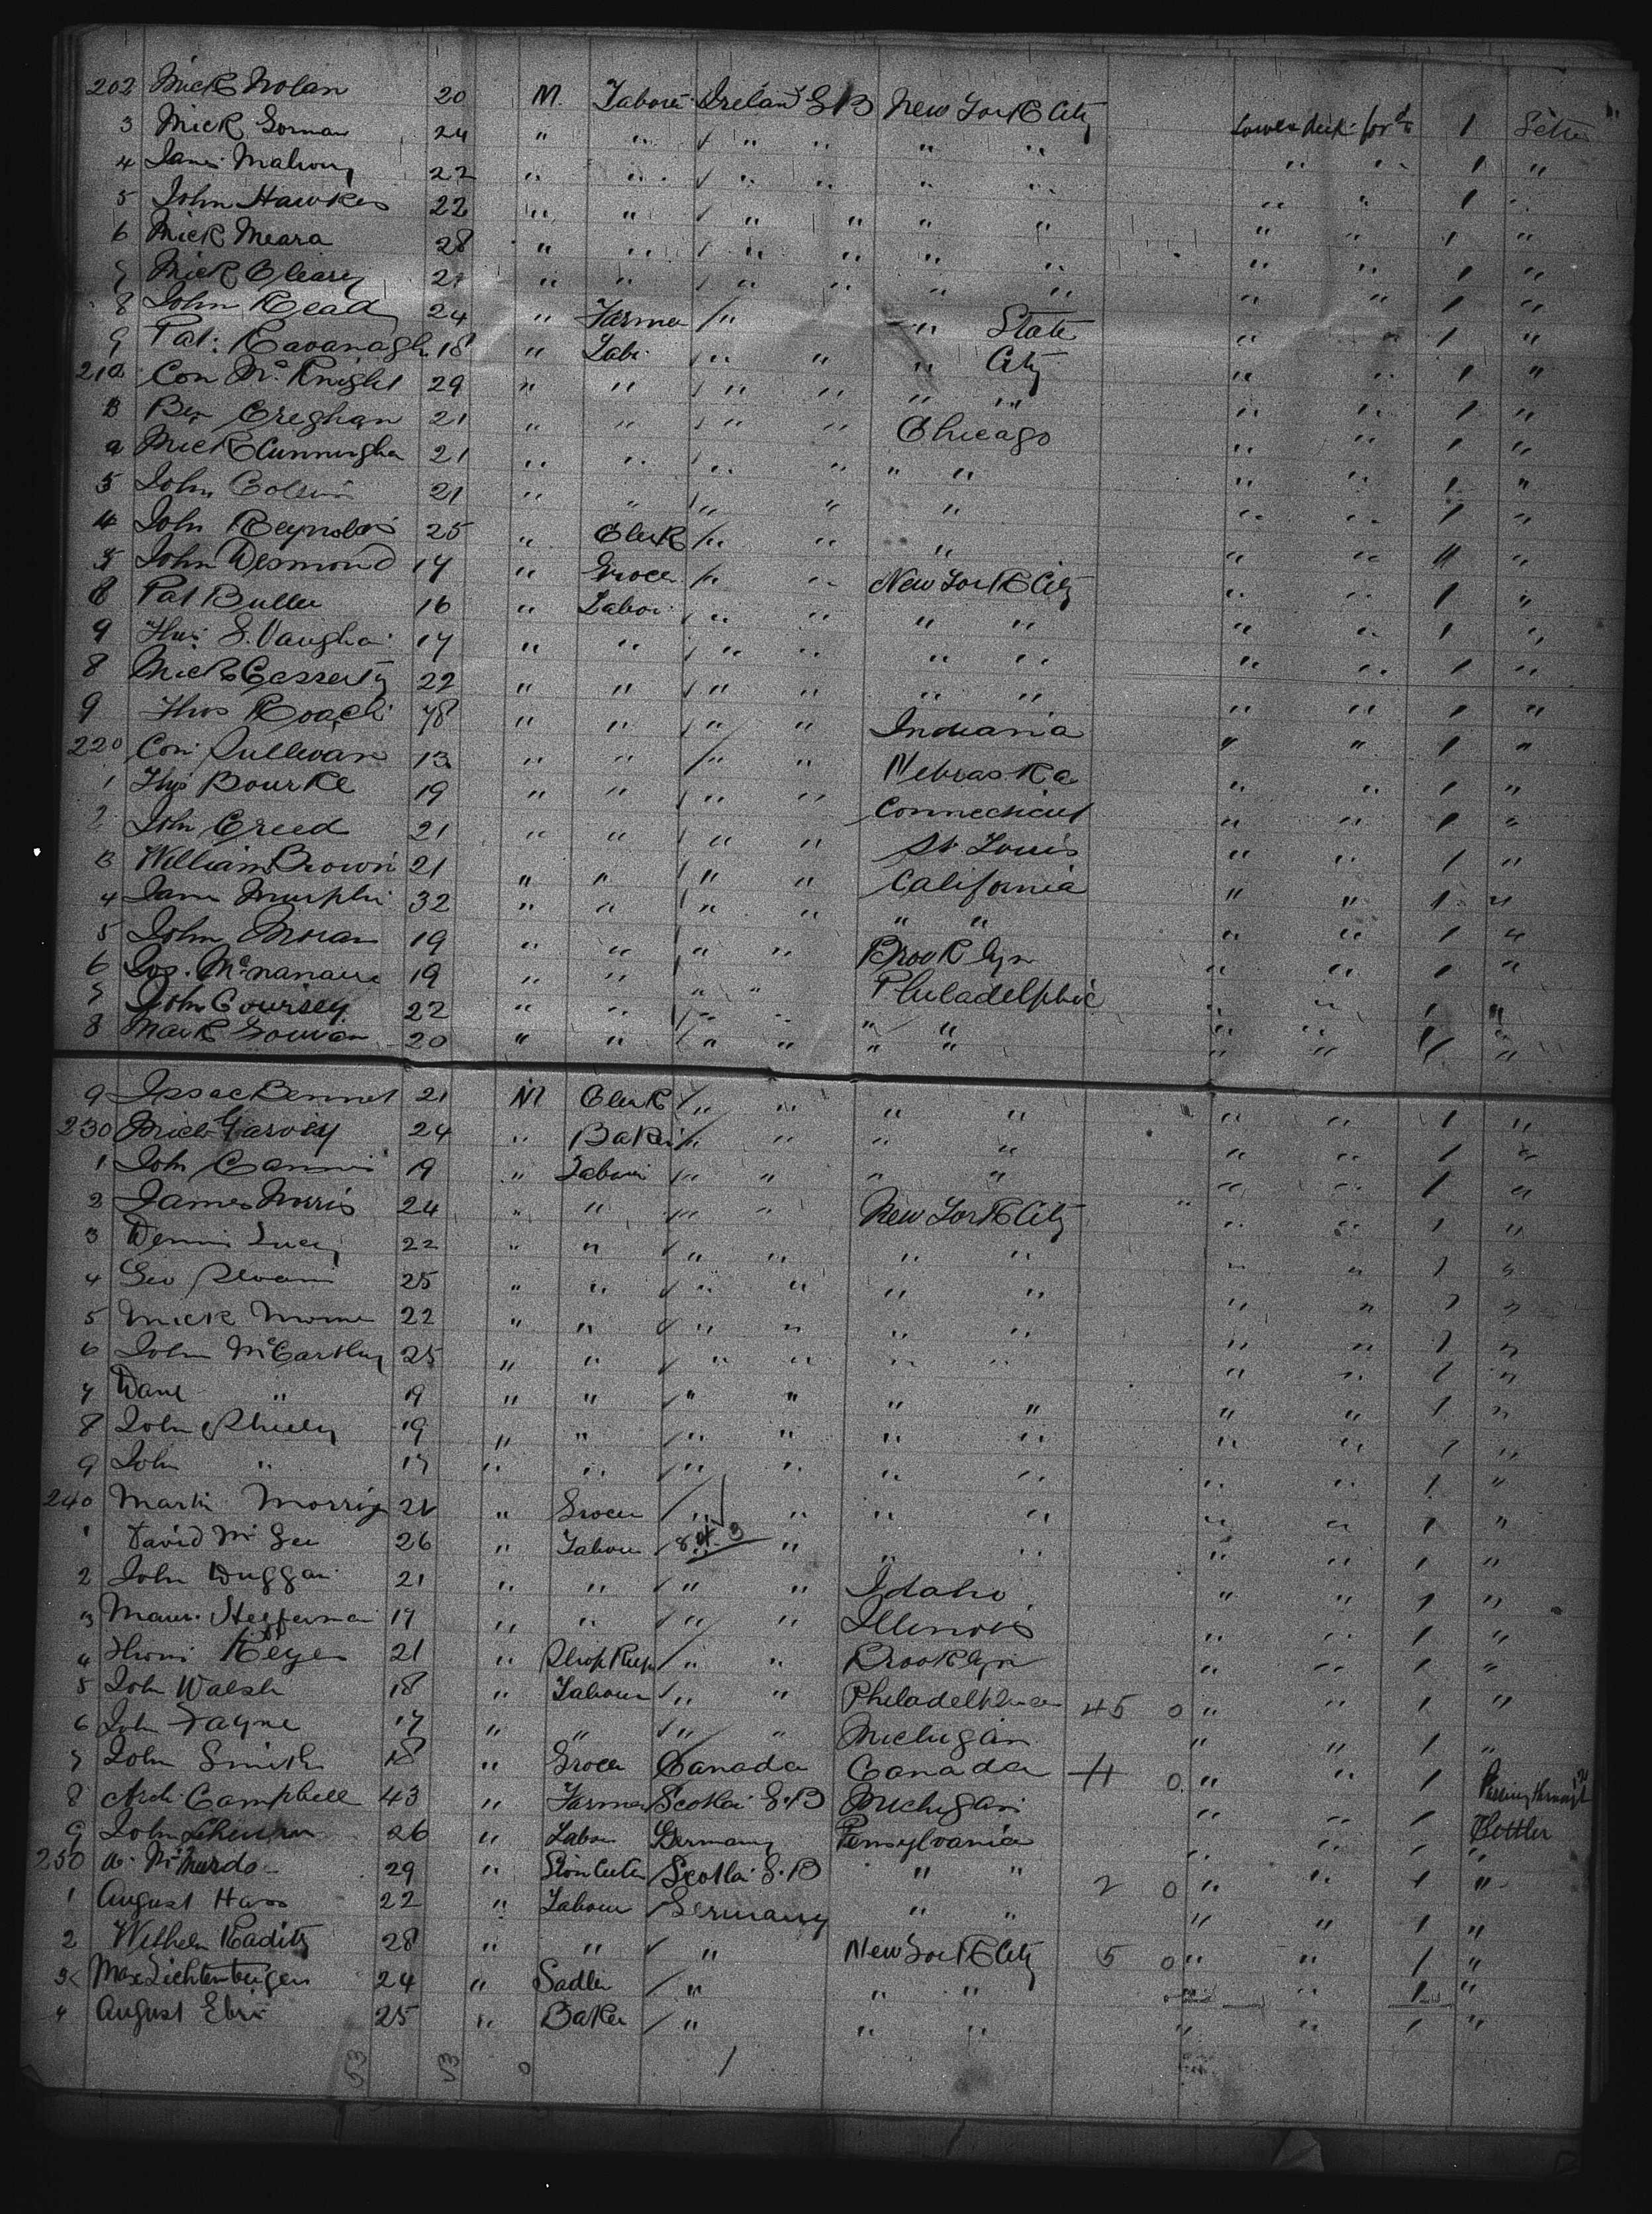 202 Mick Nolan 20 M. Labour Ireland G B New York City Lower deck for'd 1 Settler
3 Mick Gorman 24 " " " " " " " " 1 "
4 James Mahony 22 " " " " " " " " 1 "
5 John Hawkes 22 " " " " " " " " 1 "
6 Mick Meara 28 " " " " " " " " 1 "
7 Mick Cleary 21 " " " " " " " " 1 "
8 John Ready 24 " Farmer " " State " " 1 "
9 Pat: Kavanagh 18 " Labr " " " City " " 1 "
210 Con McKnight 29 " " " " " " " " 1 "
Ben Creghan 21 " " " " Chicago " " 1 "
Mick Cunningham 21 " " " " " " " " 1 "
John 21 " " " " " " " 1 "
4 John Reynolds 25 " Clerk " " " " " 1 "
5 John Desmond 17 " Grocer " " New York City " " 1 "
6 Pat Butler 16 " Labor " " " " " " 1 "
Thos S. Vaughan 17 " " " " " " " " 1 "
8 Mick 22 " " " " " " " " 1 "
9 Thos Roach 48 " " " " Indiana " " 1 "
220 Con Sullivan 13 " " " " Nebraska " " 1 "
1 Thos Bourke 19 " " " " Connecticut " " 1 "
2 John Creed 21 " " " " St Louis " " 1 "
3 William Brown 21 " " " " California " " 1 "
4 James Murphy 32 " " " " " " " " 1 "
5 John Moran 19 " " " " Brooklyn " " 1 "
6 Jos. McNamara 19 " " " " Philadelphia " " 1 "
7 John Coursey 22 " " " " " " " " 1 "
8 Mark 20 " " " " " " " " 1 "
9 Issac Bennet 21 M Clerk " " " " " " 1 "
230 Mick Garvey 24 " Baker " " " " " " 1 "
1 John 19 " Labour " " " " " " 1 "
2 James Norris 24 " " " " New York City " " 1 "
3 Dennis Lucey 22 " " " " " " " " 1 "
4 Geo Sloan 25 " " " " " " " " 1 "
5 Mick 22 " " " " " " " " 1 "
6 John McCarthy 25 " " " " " " " " 1 "
7 Danl " 19 " " " " " " " " 1 "
8 John Sheehy 19 " " " " " " " " 1 "
9 John " 17 " " " " " " " " 1 "
240 Martin 21 " Grocer " " " " " " 1 "
1 David McGee 26 " Labour " " " " " 1 "
2 John Duggan 21 " " " " Idaho " " 1 "
3 Maur. Heffernan 17 " " " " Illinois " " 1 "
4 Thomas Keyes 21 " Shop Keep " " Brooklyn " " 1 "
5 John Walsh 18 " Labour " " Philadelphia 45 0 " " 1 "
6 John Fayne 17 " " " " Michigan " " 1 "
7 John Smith 18 " Grocer Canada Canada 0 " " 1 Passing through
8 Arch Campbell 43 " Farmer Scotlan G.B Michigan " " 1 Settler
9 John 26 " Labour Germany Pensylvania " " 1 "
250 A. McMurdo 29 " Ston Cutter Scotlan G.B " " 2 0 " " 1 "
1 August Hass 22 " Labour Germany " " " " 1 "
2 Wilhelm Raditz 28 " " " New York City 5 0 " " 1 "
3 Max Lichtenbergen 24 " Sadler " " " " 1 "
4 August 25 " Baker " " " " " 1 "
53 53 0 1